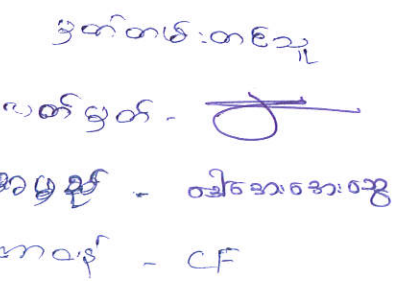 မှတ်တမ်းတင်သူ
လက်မှတ် -
အမည် - ဒေါ်အေးအေးထွေ
တာဝန် - CF